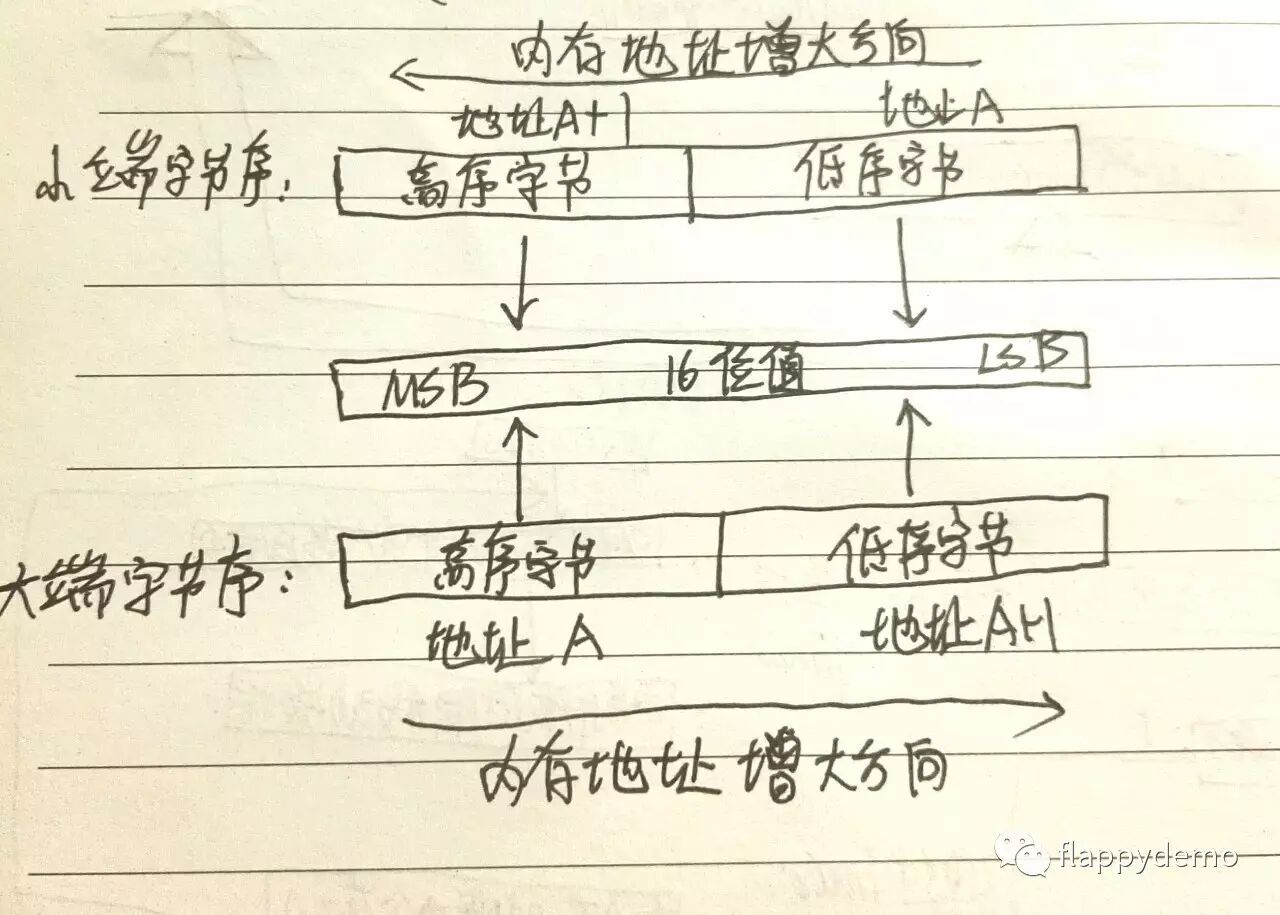 内存地址增大方向
地址A+1 地址A
小端字节序: 高序字节 低序字节
MSB 16位值 LSB
大端字节序: 高序字节 低序字节
地址A 地址A+1
内存地址增大方向
flappydemo